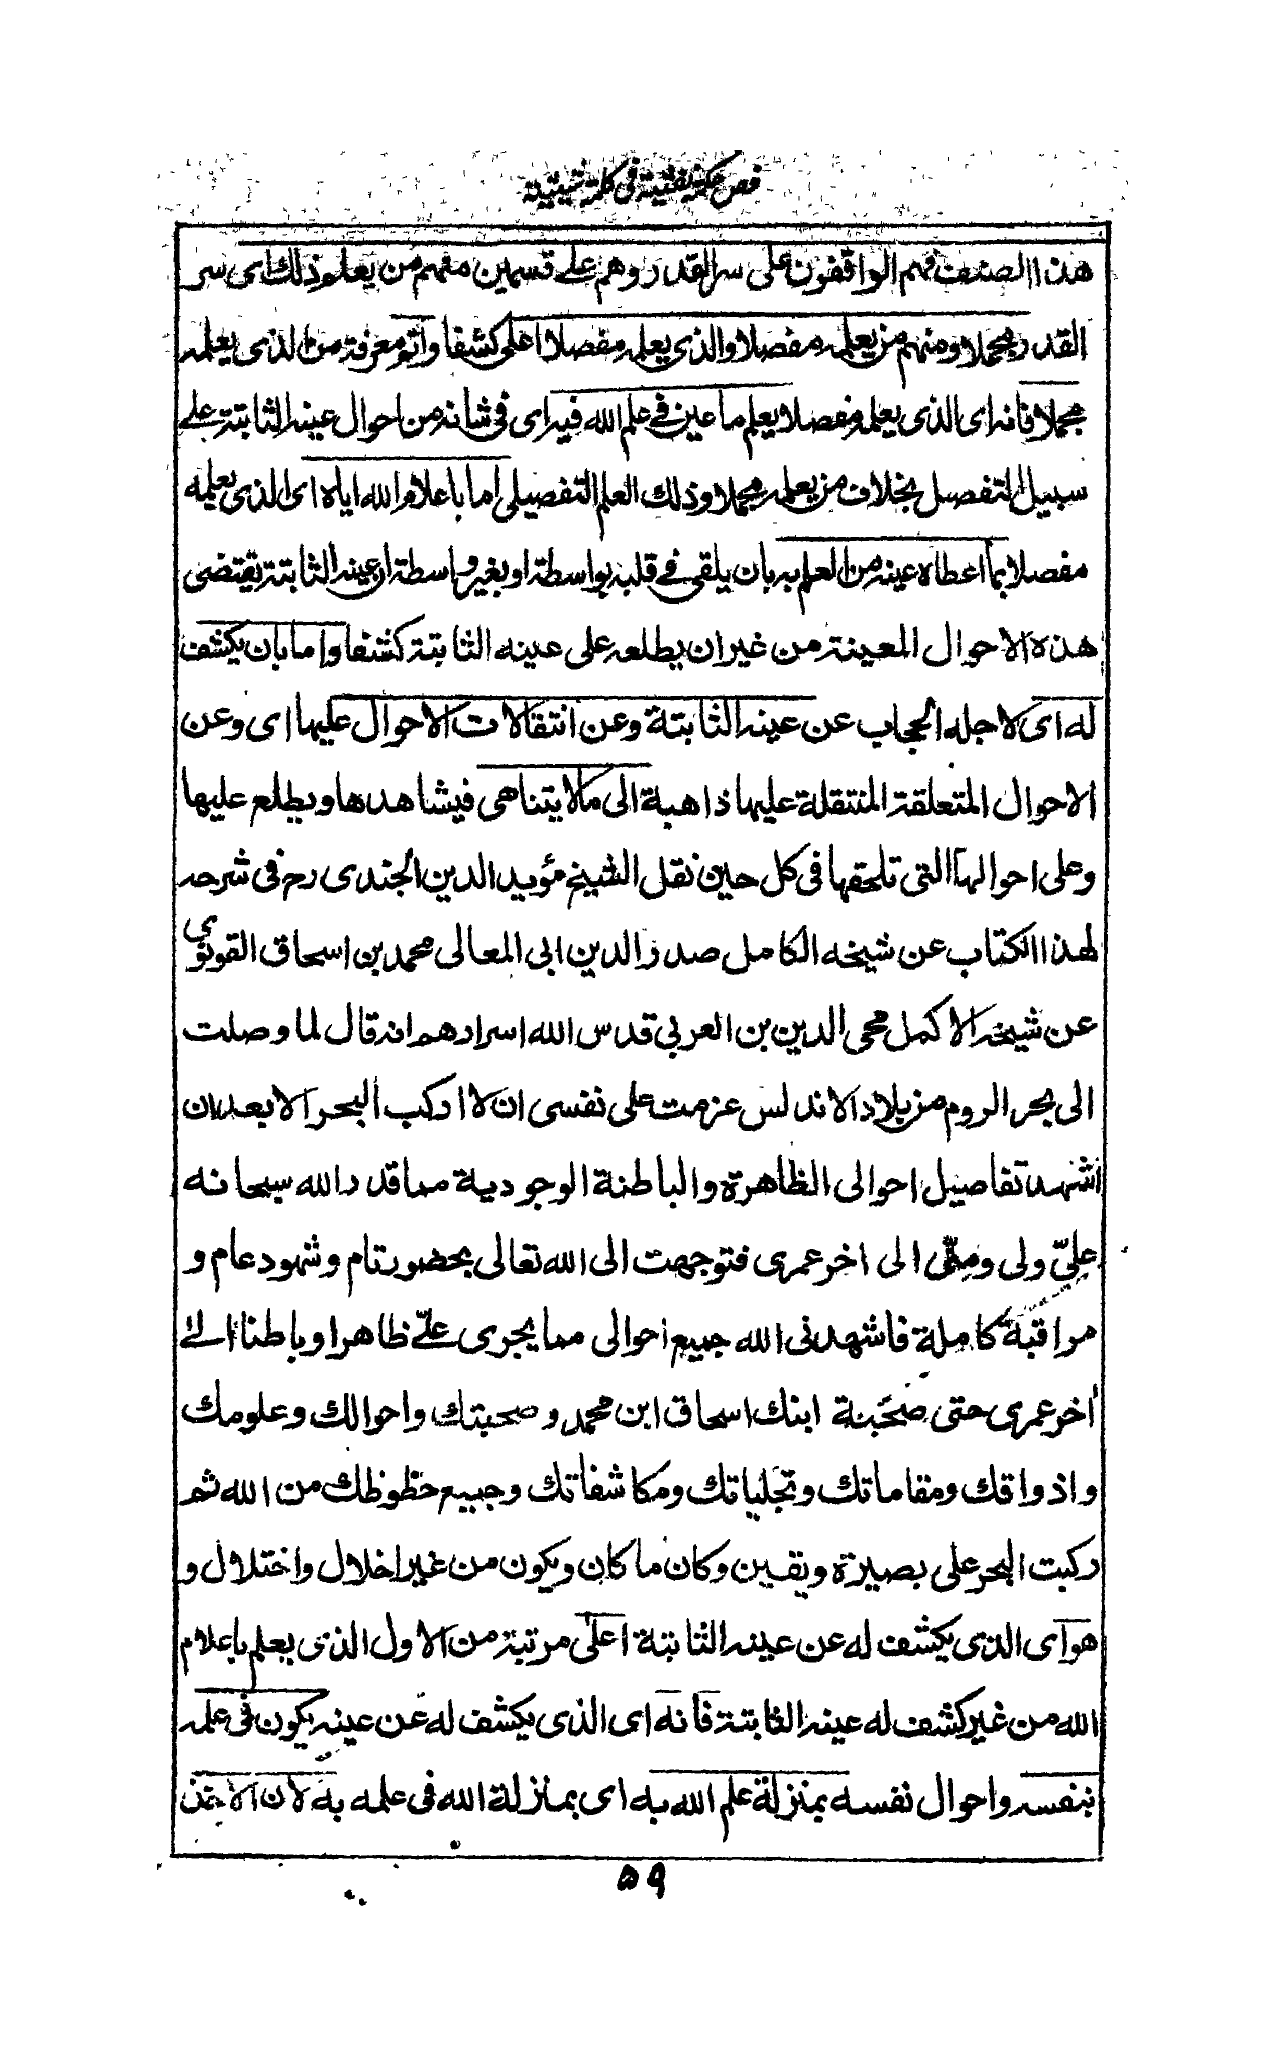 فص حكمة نفثية في كلمة شيثية
هذا الصنف فهم الواقفون على سر القدر وهم على قسمين منهم من يعلم ذلك اى سر
القدر مجملا ومنهم من يعلمه مفصلا والذى يعلمه مفصلا اعلى كشفا واتم معرفة من الذى يعلمه
مجملا فانه اى الذى يعلمه مفصلا يعلم ما عين في علم الله فيه اى في شانه من احوال عينه الثابتة على
سبيل التفصيل بخلاف من يعلمه مجملا وذلك العلم التفصيلى اما باعلام الله اياه اى الذى يعلمه
مفصلا بما اعطاه عينه من العلم به بان يلقى في قلبه بواسطة او بغير واسطة ان عينه الثابتة يقتضى
هذه الاحوال المعينة من غير ان يطلعه على عينه الثابتة كشفا واما بان يكشف
له اى لاجله الحجاب عن عينه الثابتة وعن انتقالات الاحوال عليها اى وعن
الاحوال المتعلقة المنتقلة عليها ذاهبة الى ما لا يتناهى فيشاهدها ويطلع عليها
وعلى احوالها التى تلحقها فى كل حين نقل الشيخ مؤيد الدين الجندى رح فى شرحه
لهذا الكتاب عن شيخه الكامل صدر الدين ابى المعالى محمد بن اسحاق القونوي
عن شيخه الاكمل محى الدين بن العربي قدس الله اسرارهم انه قال لما وصلت
الى بحر الروم من بلاد الاندلس عزمت على نفسى ان لا اركب البحر الا بعد ان
اشهد تفاصيل احوالى الظاهرة والباطنة الوجودية مما قدر الله سبحانه
علىّ ولى ومنّى الى اخر عمرى فتوجهت الى الله تعالى بحضور تام وشهود عام و
مراقبة كاملة فاشهدنى الله جميع احوالى مما يجرى علىّ ظاهرا وباطنا الى
أخر عمرى حتى صحبة ابنك اسحاق ابن محمد وصحبتك واحوالك وعلومك
واذواقك ومقاماتك وتجلياتك ومكاشفاتك وجميع حظوظك من الله ثم
ركبت البحر على بصيرة ويقين وكان ما كان ويكون من غير اخلال واختلال و
هو اى الذى يكشف له عن عينه الثابتة اعلى مرتبة من الاول الذى يعلم باعلام
الله من غير كشف له عينه الثابتة فانه اى الذى يكشف له عن عينه يكون فى علمه
بنفسه واحوال نفسه بمنزلة علم الله به اى بمنزلة الله فى علمه به لان الاخذ
۵۹